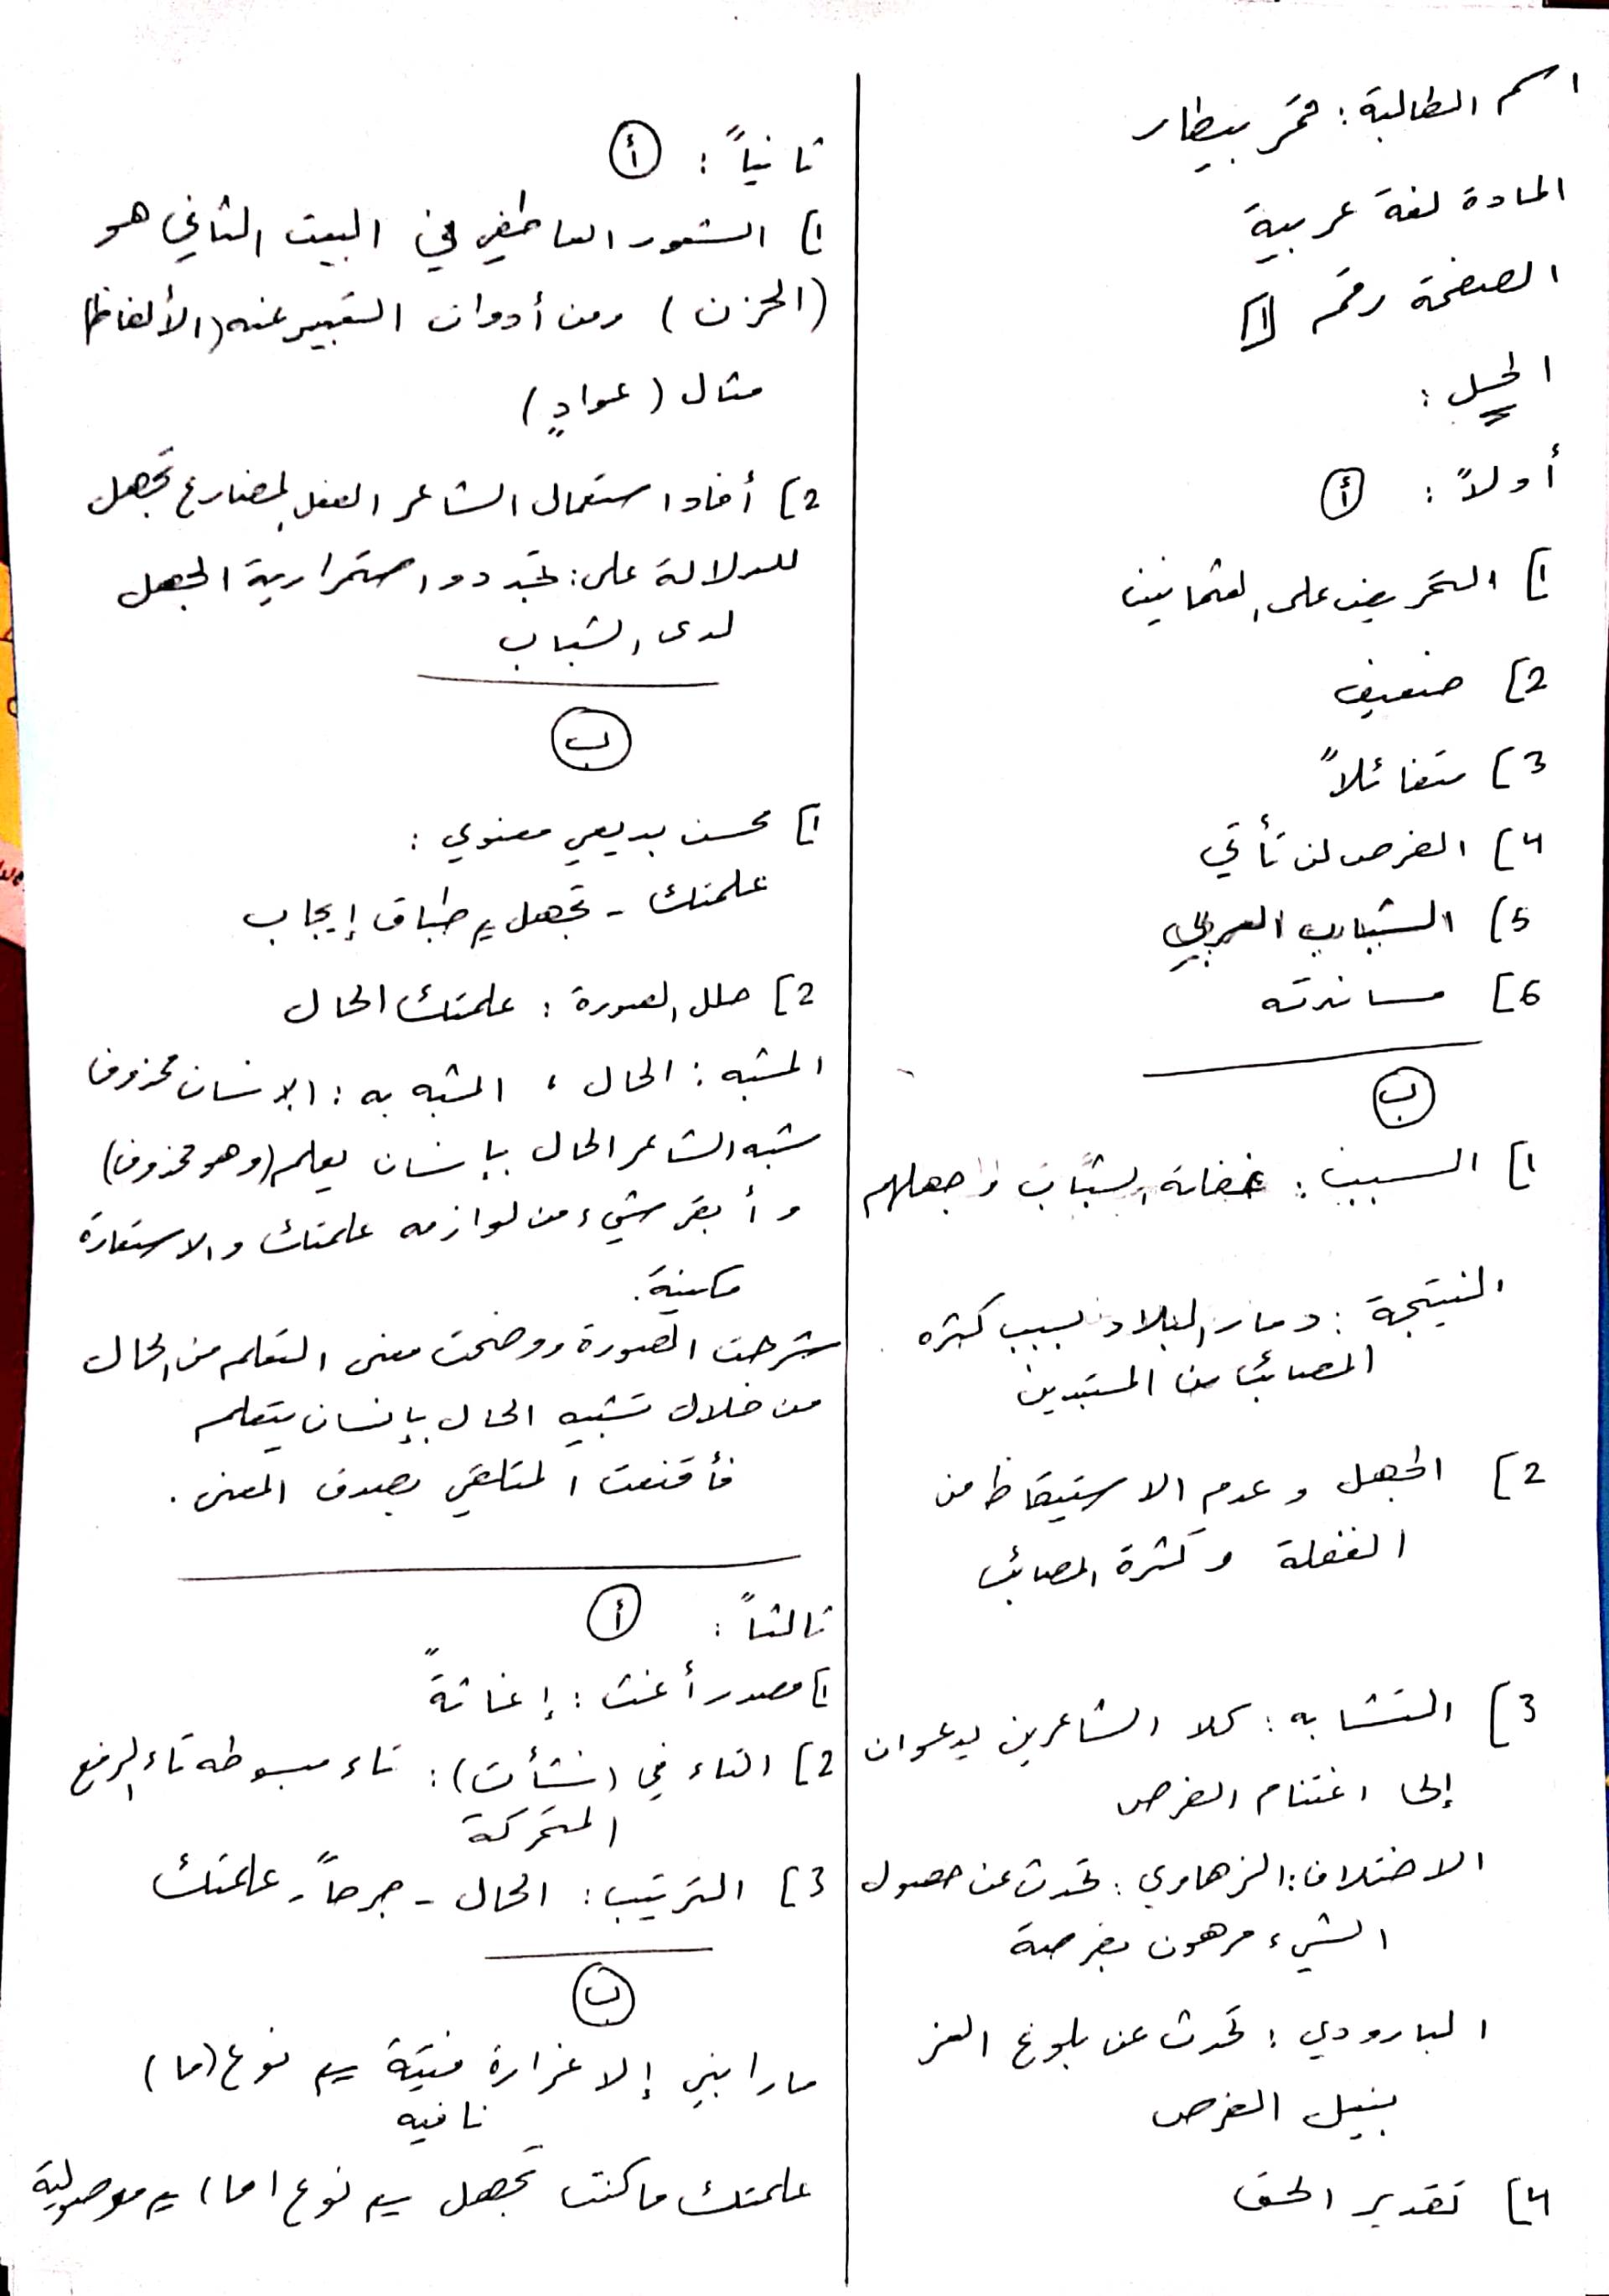 اسم الطالبة: قمر بيطار
المادة لغة عربية
الصفحة رقم [1]
الحل:
أولاً: أ
1] التحريض على العثمانيين
2] ضعيف
3] متفائلاً
4] الفرص لن تأتي
5] الشباب العربي
6] مساندته
ب
1] السبب: غفلة الشباب وجهلهم
النتيجة: دمار البلاد بسبب كثره
المصائب من المستبدين
2] الجهل وعدم الاستيقاظ من
الغفلة وكثرة المصائب
3] التشابه: كلا الشاعرين يدعوان
إلى اغتنام الفرص
الاختلاف: الزهاوي: تحدث عن حصول
الشيء مرهون بفرصة
البارودي: تحدث عن بلوغ العز
بنيل الفرص
4] تقدير الحق
ثانياً: أ
1] الشعور العاطفي في البيت الثاني هو
(الحزن) ومن أدوات التعبير عنه (الألفاظ)
مثال (عوادٍ)
2] أفاد استعمال الشاعر الفعل المضارع تجهل
للدلالة على: تجدد واستمرارية الجهل
لدى الشباب
ب
1] محسن بديعي معنوي:
علمتك - تجهل ← طباق إيجاب
2] حلل الصورة: علمتك الحال
المشبه: الحال، المشبه به: الإنسان محذوف
شبه الشاعر الحال بإنسان يعلم (وهو محذوف)
وأبقى شيء من لوازمه علمتك والاستعارة
مكنية.
شرحت الصورة ووضحت معنى التعلم من الحال
من خلال تشبيه الحال بإنسان يتعلم
فأقنعت المتلقي بصدق المعنى.
ثالثاً: أ
1] مصدر أغثت: إغاثةً
2] التاء في (نشأت): تاء مبسوطه تاء الرفع
المتحركة
3] الترتيب: الحال - جرحاً - علمتك
ب
ما رابني إلا غرارة فتية ← نوع (ما)
نافيه
علمتك ما كنت تجهل ← نوع (ما) ← موصولية